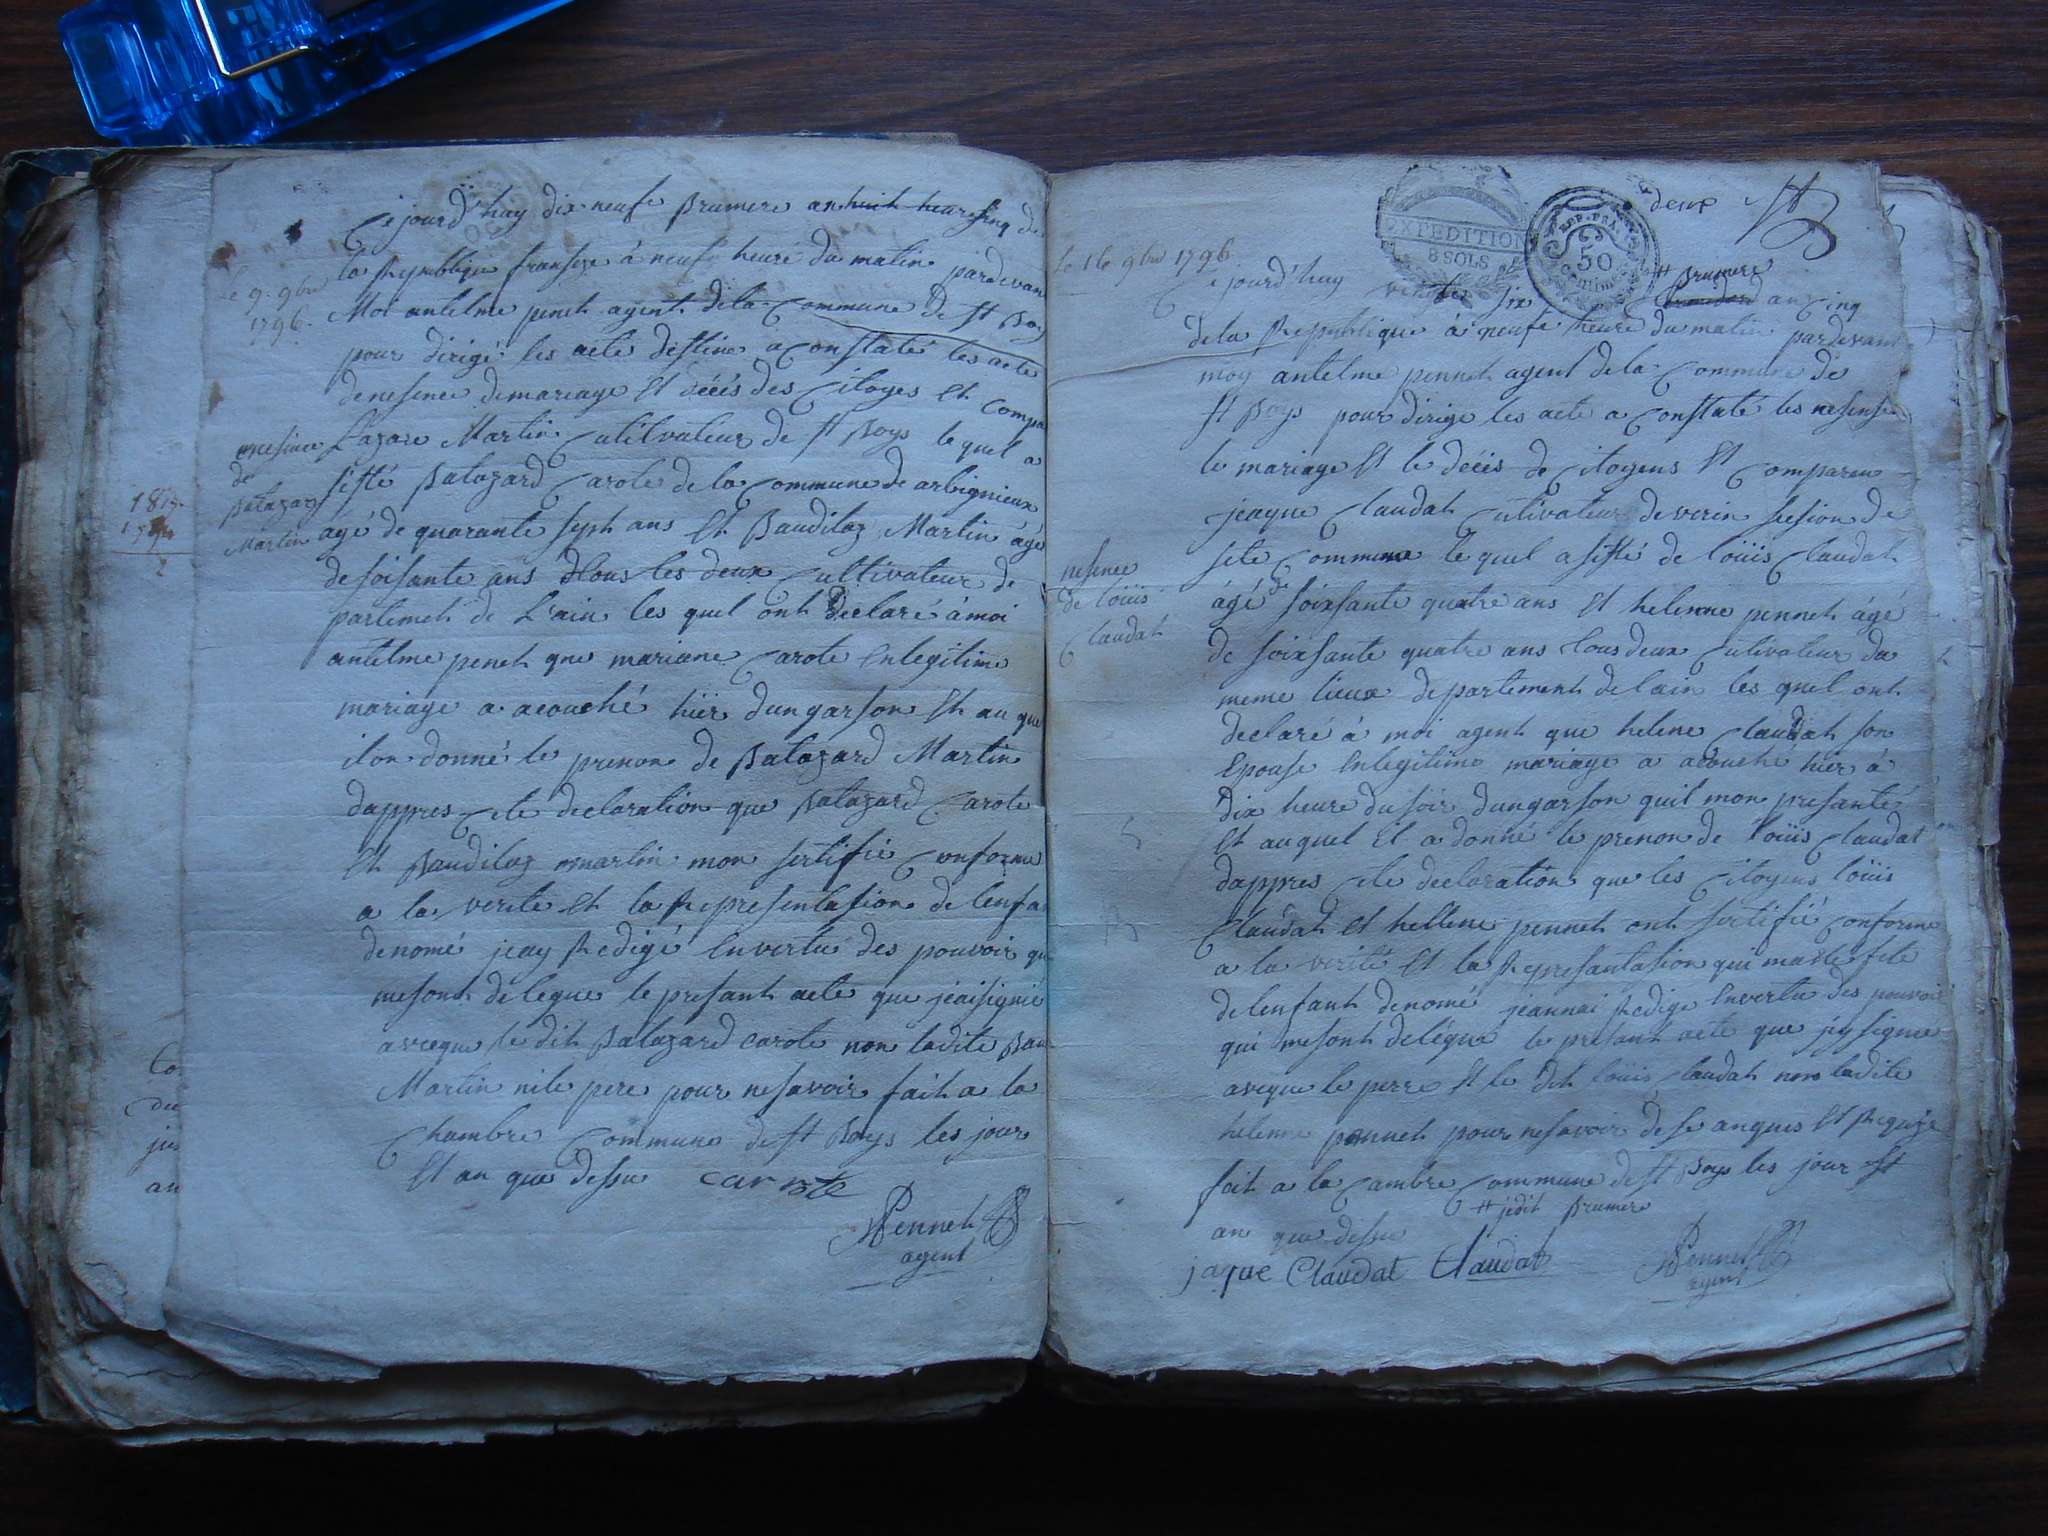 Cejourd'huy dix neufe Brumere an huit heure sinq de
la Republique fransese à neufe heure du matin pardevan
le 9. 9bre
1796.
Moi antelme penet agent dela Commune de St Boys
pour dirigé les acte destine a Constaté les acte
denesence demariage Et décés des Citoyes Et Compa
nesence
de
Balazard
Martin
Lazare Martin Cultivateur de St Boys le quel a
sisté Balazard Carote de la Commune de arbignieux
1813.
agé de quarante seph ans Et Bauditaz Martin âgé
desoisante ans Tous les deux Cultivateur de
partemet de L'ain les quel ont declaré àmoi
antelme penet que mariane Carote Enlegitime
mariage a acouché hiër dungarson Et au que
ilon donné le prenon de Balazard Martin
dappres Cete declaration que Balazard Carote
Et Bauditaz martin mon sertifié Conforme
a la verite Et la Representasion de lenfan
denomé jeay Redigé Envertu des pouvoir qu
mesont delegue le presant acte que jeaisignié
avecque le dit Balazard carote non ladite Bau
Martin nile pere pour nesavoir fait a la
Chambre Commune de St Boys les jour
Et an que dessu carrote
Pennet
agent
deux
EXPEDITION
8 SOLS
REP. FRA.
50
Centim
le 16 9bre 1796.
Brumere
Cejourd'huy vingt six an Cinq
dela Republique à neufe heure du matin pardevant
moy antelme pennet agent dela Commune de
St Boys pour dirige les acte a Constaté les nesense
le mariage Et le décés de Citoyens Et Comparen
jeaque Claudat Cutivateur deverin session de
sete Commune le quel asisté de loüis Claudat
nesence
de loüis
Claudat
âgé de soixsante quatre ans Et helenne pennet âgé
de soixsante quatre ans tous deux Cutivateur du
meme lieux departement delain les quel ont
declaré à moi agent que helene Claudat son
Epouse Enlegitime mariage a acouché hier à
dix heure dusoir dungarson quil mon presanté
Et auquel il a donné le prenon de loüis Claudat
dappres Cete declaration que les Citoyens loüis
Claudat Et hellene pennet ont sertifié Conforme
a la verité Et la Representasion qui maete fete
delenfant denomé jeannai Redige Envertu des pouvoir
qui mesont delégue le presant acte que jysigne
avecque le perre Et le dit loüis Claudat non ladite
helenne pennet pour nesavoir dese anquis Et Requise
fait a la Cambre Commune de St Boys les jour Et
an que dessu
jedit Brumere
jaque Claudat Claudat
Pennet
agent